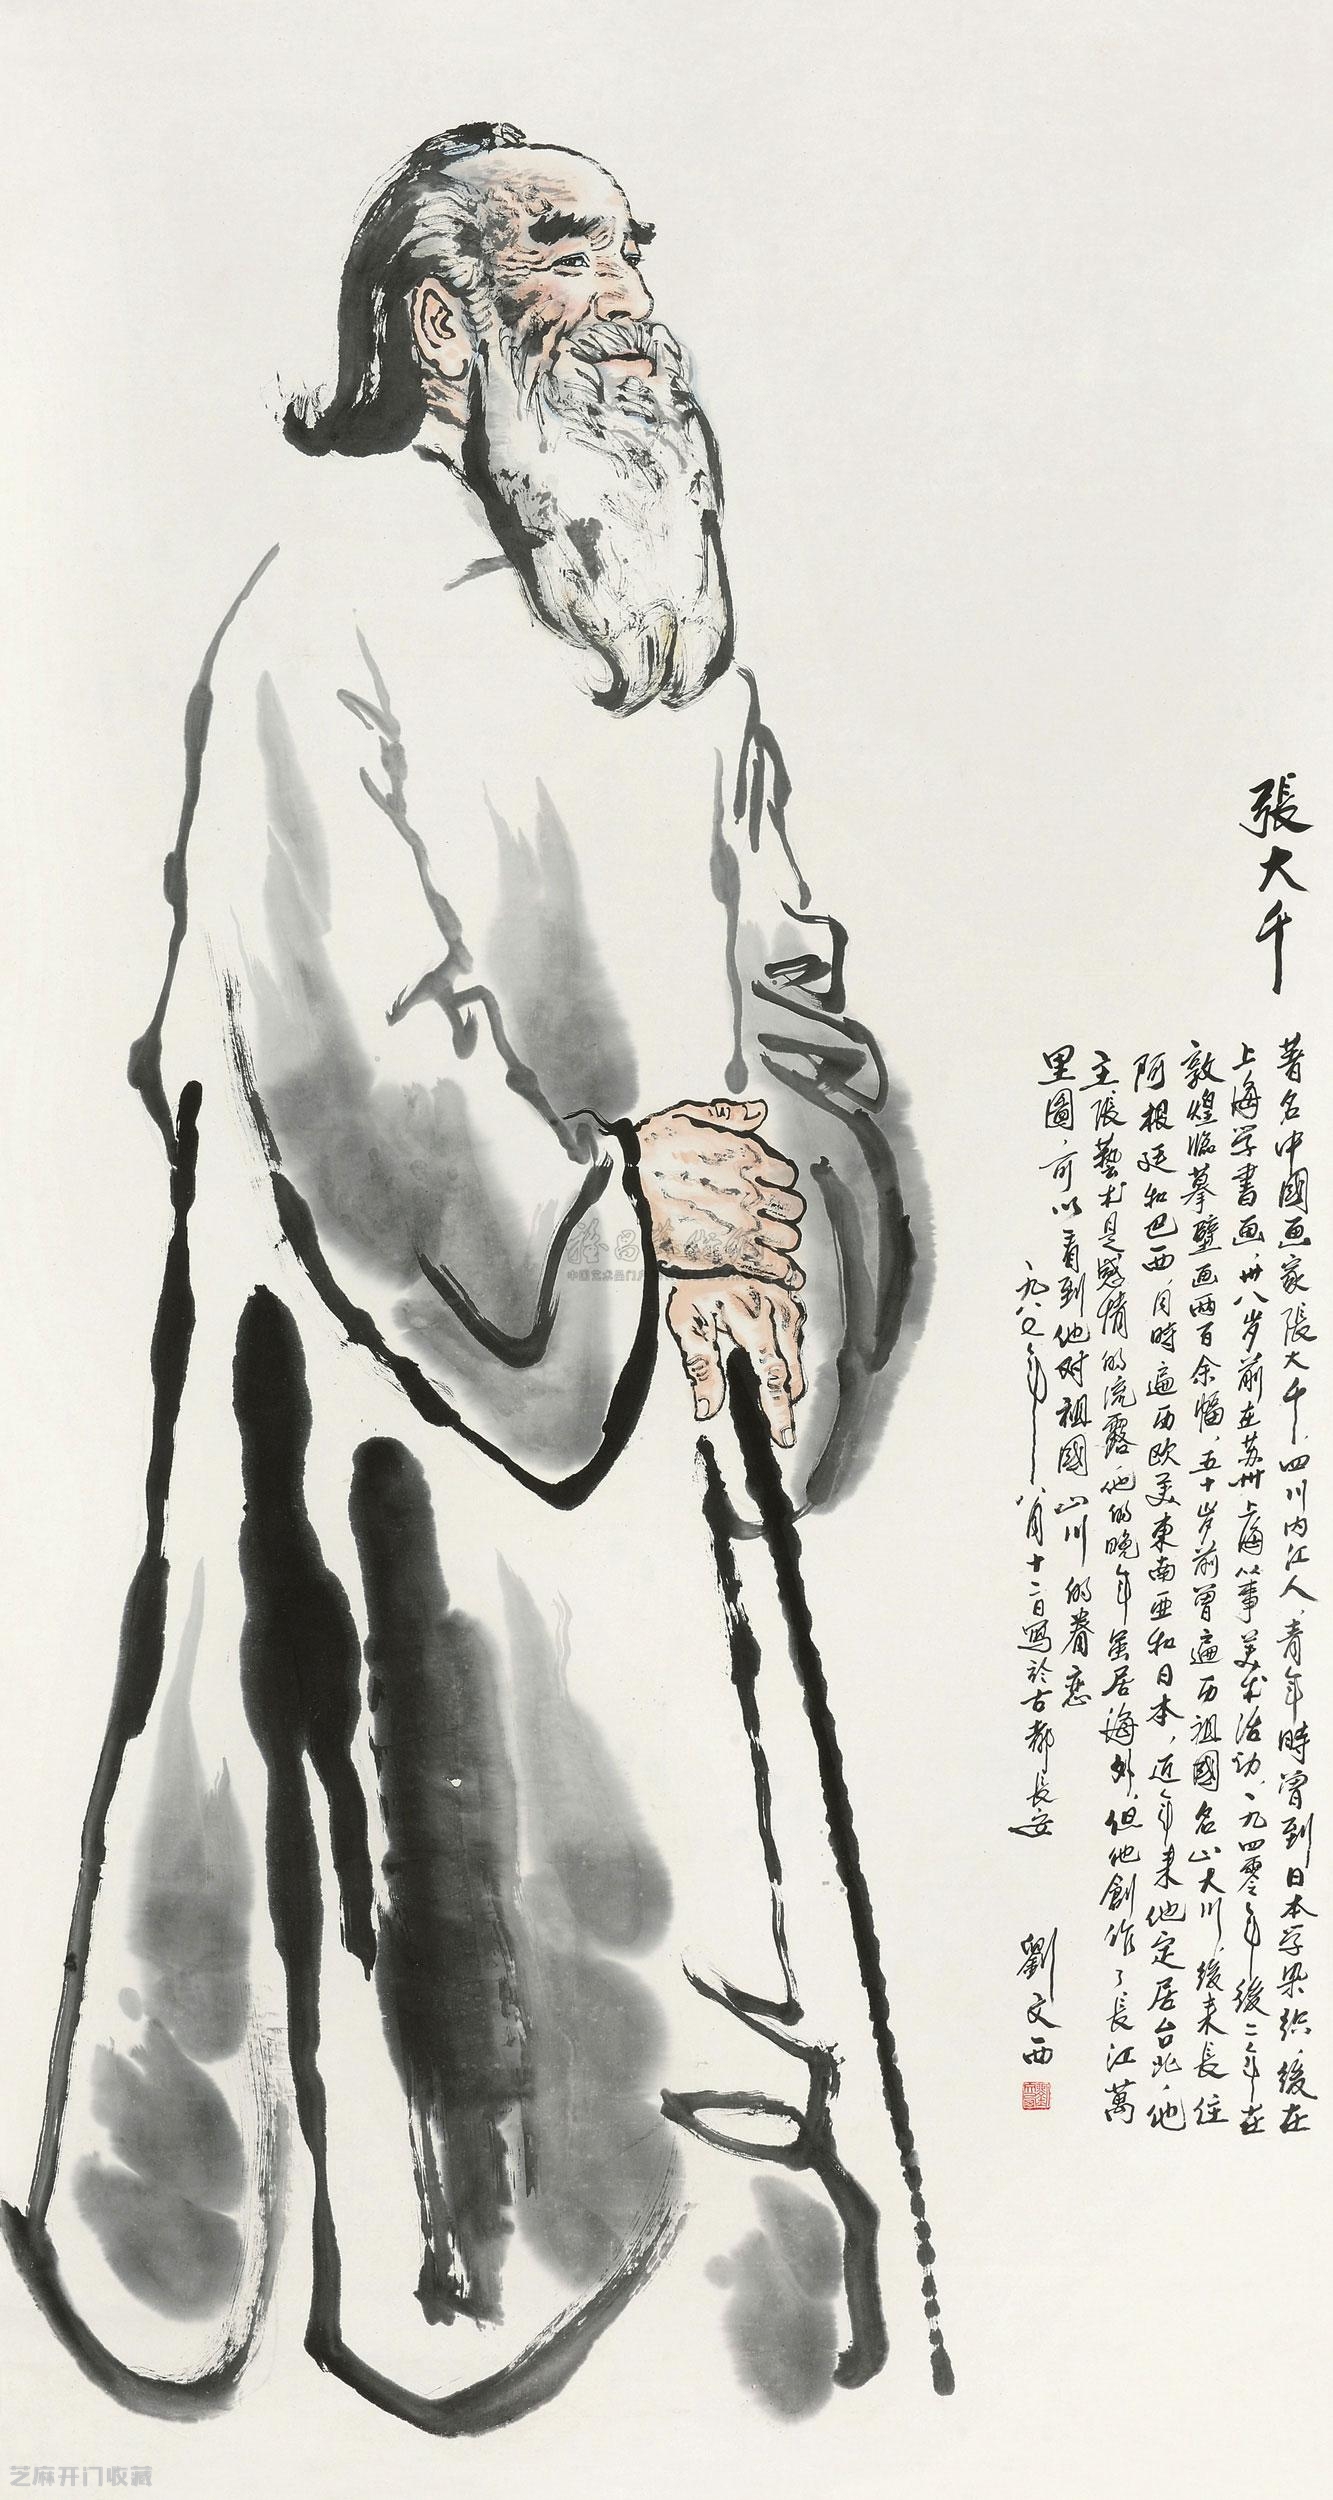 張大千
著名中國画家張大千，四川内江人，青年時曾到日本学染织，後在
上海学書画，卅八岁前在苏州上海从事美术活动，一九四零年後二年在
敦煌臨摹壁画两百余幅，五十岁前曾遍历祖國名山大川，後来長住
阿根廷和巴西，同時遍历欧美東南亚和日本，近年来他定居台北，他
主張藝术是感情的流露，他的晚年虽居海外，但他創作了長江萬
里圖，可以看到他对祖國山川的眷恋
一九八七年八月十二日写於古都長安
劉文西
芝麻开门收藏